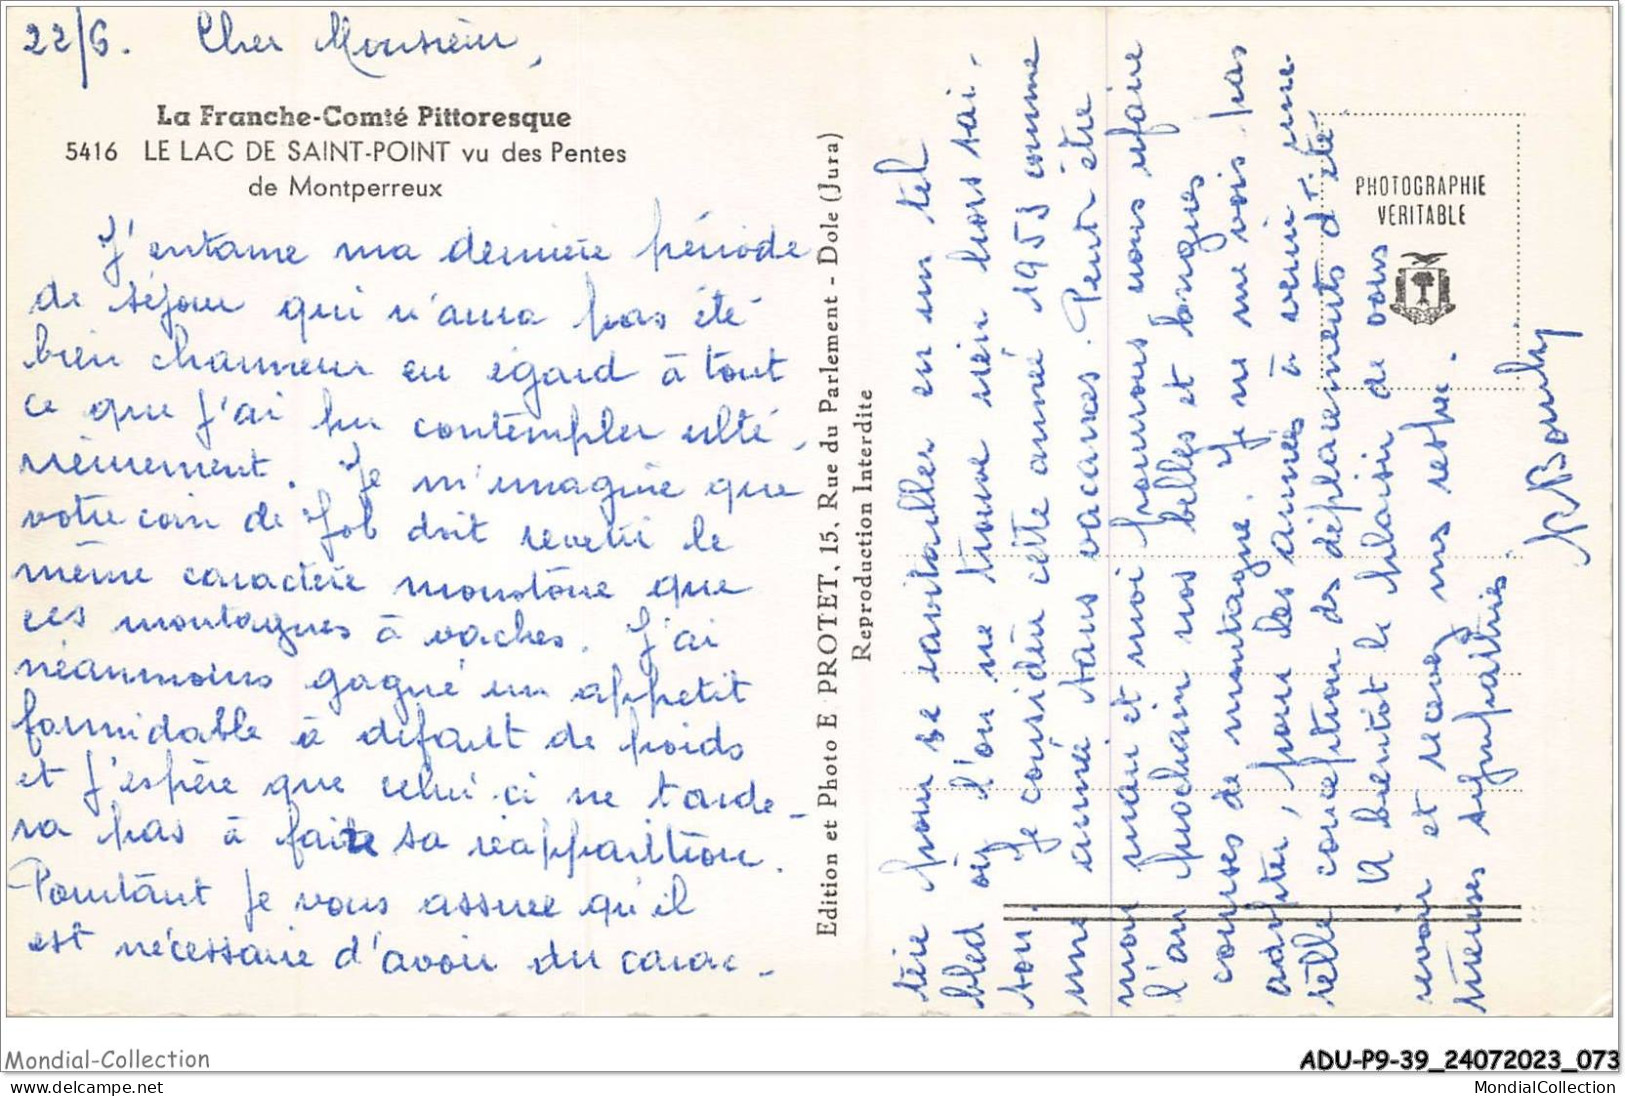 22/6. Cher Monsieur,
La Franche-Comté Pittoresque
5416 LE LAC DE SAINT-POINT vu des Pentes
de Montperreux
J'entame ma dernière période
de séjour qui n'aura pas été
bien charmeur eu égard à tout
ce que j'ai pu contempler ulté-
rieurement. Je m'imagine que
votre coin de Job doit revetir le
même caractère monotone que
ces montagnes à vaches. J'ai
néanmoins gagné un appetit
formidable à défaut de poids
et j'espère que celui-ci ne tarde-
ra pas à faire sa réapparition.
Pourtant je vous assure qu'il
est nécessaire d'avoir du carac-
Edition et Photo E. PROTET, 15, Rue du Parlement - Dole (Jura)
Reproduction Interdite
tère pour se ravitailler en un tel
bled où l'on ne trouve rien hors sai-
son. Je considère cette année 1953 comme
une année sans vacances. Peut être
mon mari et moi pourrons nous refaire
l'an prochain nos belles et longues
courses de montagne. Je ne me vois pas
adopter, pour les années à venir une
telle conception des déplacements d'été.
A bientôt le plaisir de vous
revoir et recevez mes respec-
tueuses sympathies.
PHOTOGRAPHIE
VERITABLE
Mondial-Collection
ADU-P9-39_24072023_073
www.delcampe.net
MondialCollection